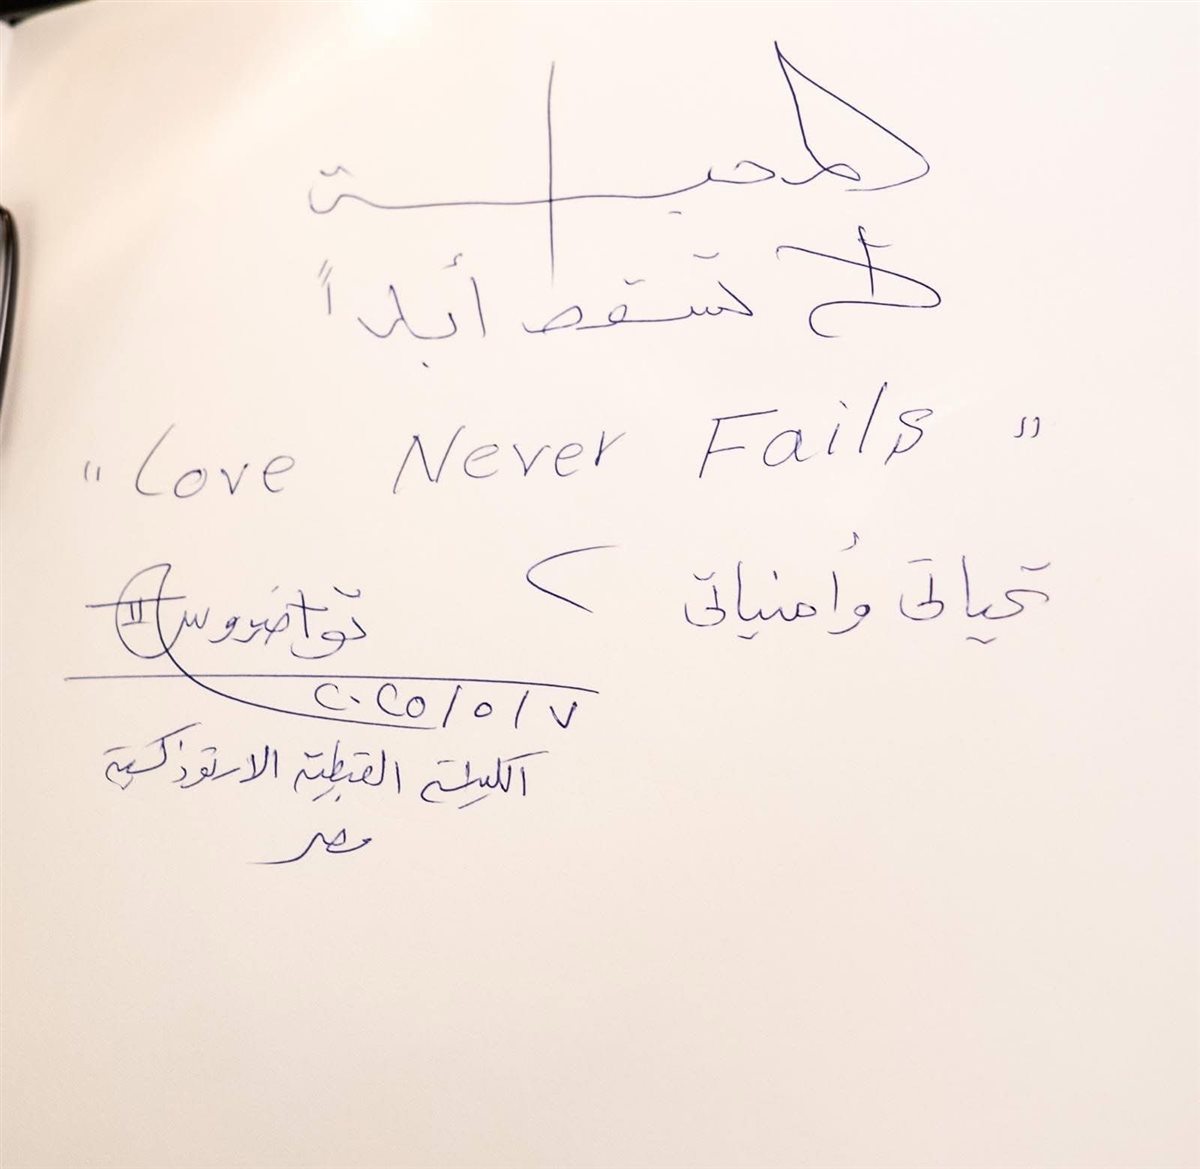 المحبة
لا تسقط أبداً
"Love Never Fails"
تحياتى وأمنياتى
تواضروس II
٢٠٢٥/٥/٧
الكنيسة القبطية الارثوذكسية
مصر